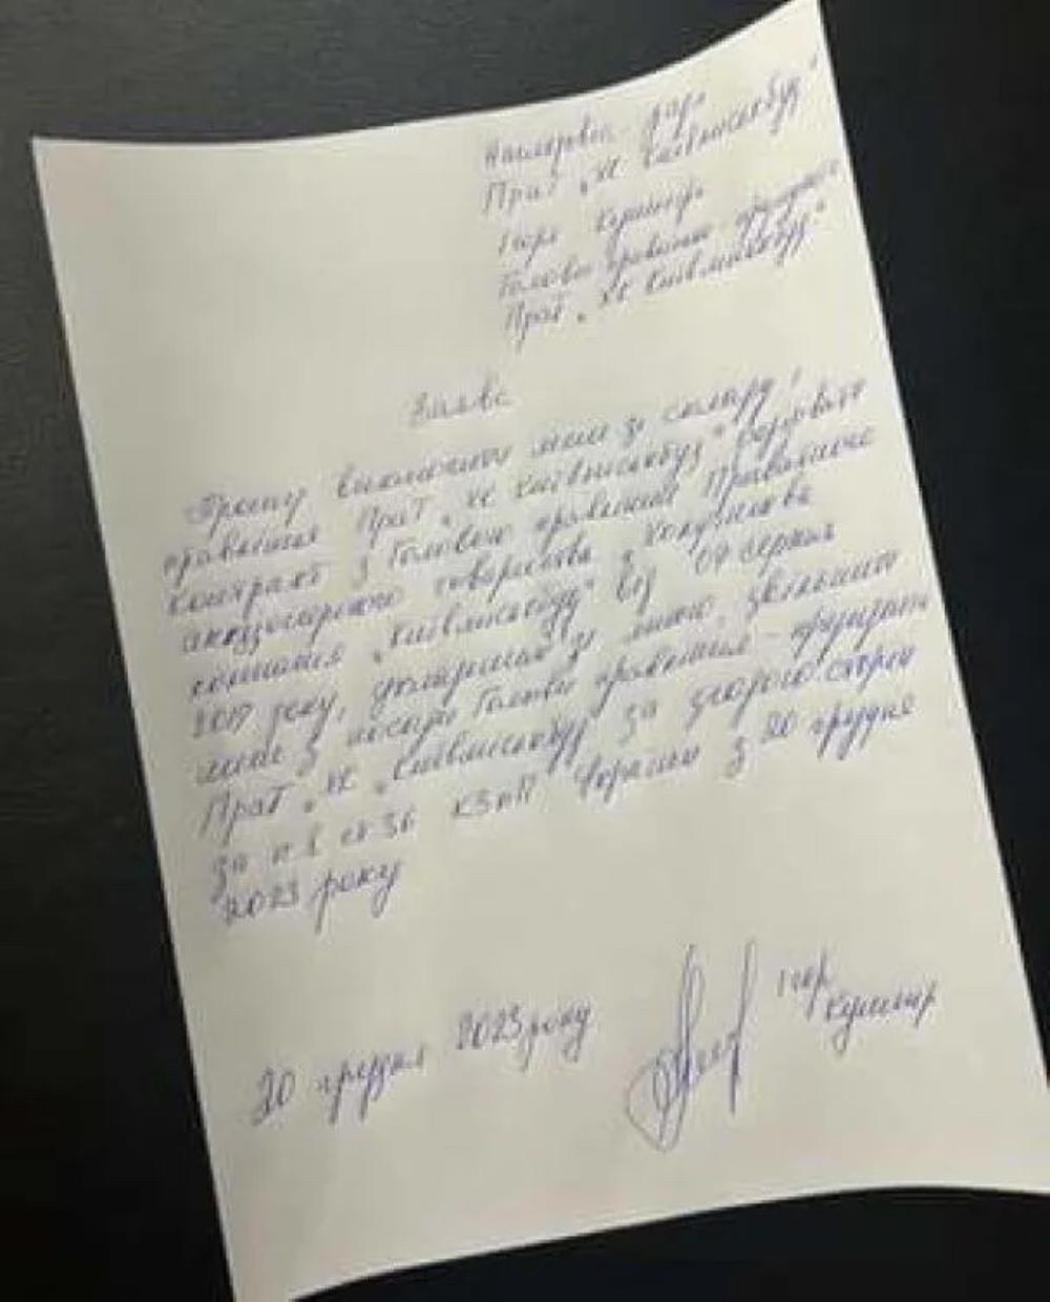 Наглядова рада
ПрАТ „ХК Київміськбуд"
Ігоря Кушніра
Голови правління-президента
ПрАТ „ХК Київміськбуд"
Заява
Прошу виключити мене зі складу
правління ПрАТ „ХК Київміськбуд", розірвати
контракт з Головою правління Приватного
акціонерного товариства „Холдингова
компанія „Київміськбуд" від 07 серпня
2017 року, укладений зі мною, звільнити
мене з посади Голови правління-президента
ПрАТ „ХК „Київміськбуд" за згодою сторін
за п.1 ст 36 КЗпП України з 20 грудня
2023 року
20 грудня 2023 року
Ігор
Кушнір